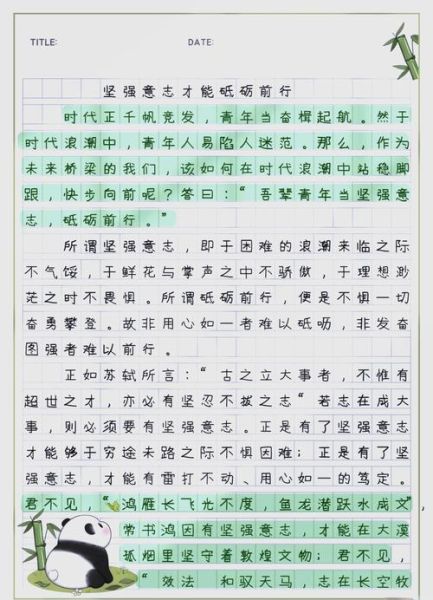 TITLE:
DATE:
坚强意志才能砥砺前行
时代正千帆竞发，青年当奋楫起航。然于
时代浪潮中，青年人易陷人迷范。那么，作为
未来桥梁的我们，该如何在时代浪潮中站稳脚
跟，快步向前呢？答曰：“吾辈青年当坚强意
志，砥砺前行。”
所谓坚强意志，即于困难的浪潮来临之际
不气馁，于鲜花与掌声之中不骄傲，于理想渺
茫之时不畏惧。所谓砥砺前行，便是不惧一切
奋勇攀登。故非用心如一者难以砥砺，非发奋
图强者难以前行。
正如苏轼所言：“古之立大事者，不惟有
超世之才，亦必有坚忍不拔之志“若志在成大
事，则必须要有坚强意志。正是有了坚强意志
才能够于穷途未路之际不惧困难；正是有了坚
强意志，才能有雷打不动、用心如一的笃定。
君不见，“鸿雁长飞光不度，鱼龙潜跃水成文”，
常书鸿因有坚强意志，才能在大漠
孤烟里坚守着敦煌文物；君不见，
“效法 和驭天马，志在长空牧